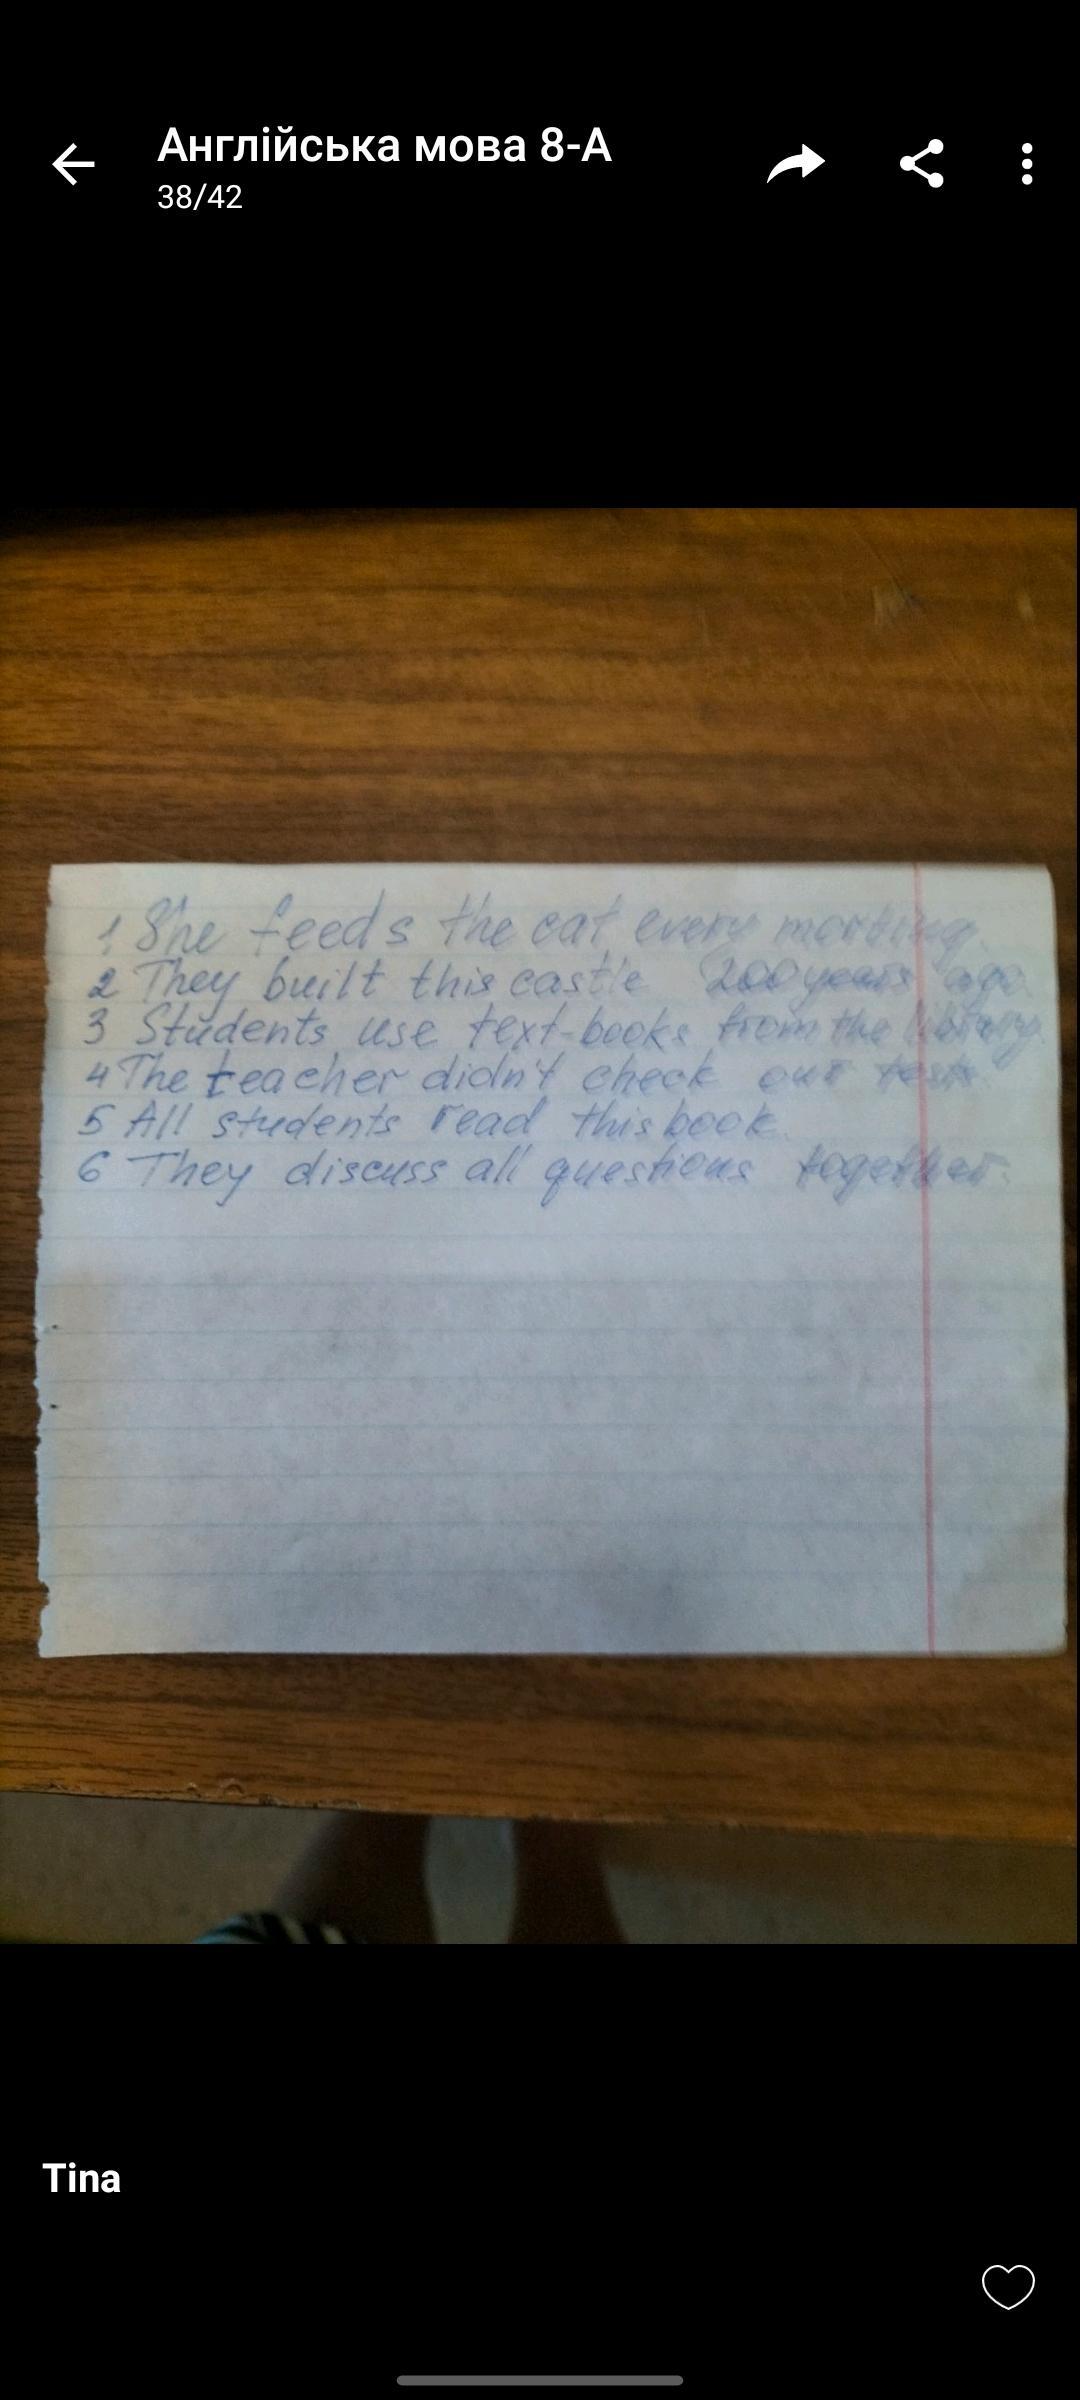 Англійська мова 8-А
38/42
1 She feeds the cat every morning.
2 They built this castle 200 years ago
3 Students use text-books from the library.
4 The teacher didn't check our tests.
5 All students read this book.
6 They discuss all questions together.
Tina